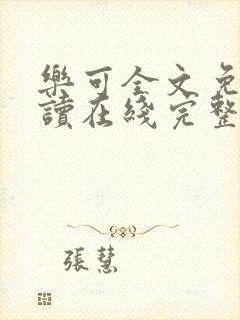 樂可全文免
讀在綫完整
張慧